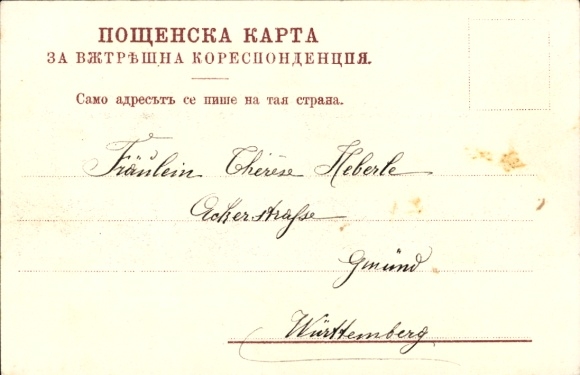 ПОЩЕНСКА КАРТА
ЗА ВѪТРѢШНА КОРЕСПОНДЕНЦИЯ.
Само адресътъ се пише на тая страна.
Fräulein Thérèse Heberle
Ackerstraße
Gmünd
Württemberg